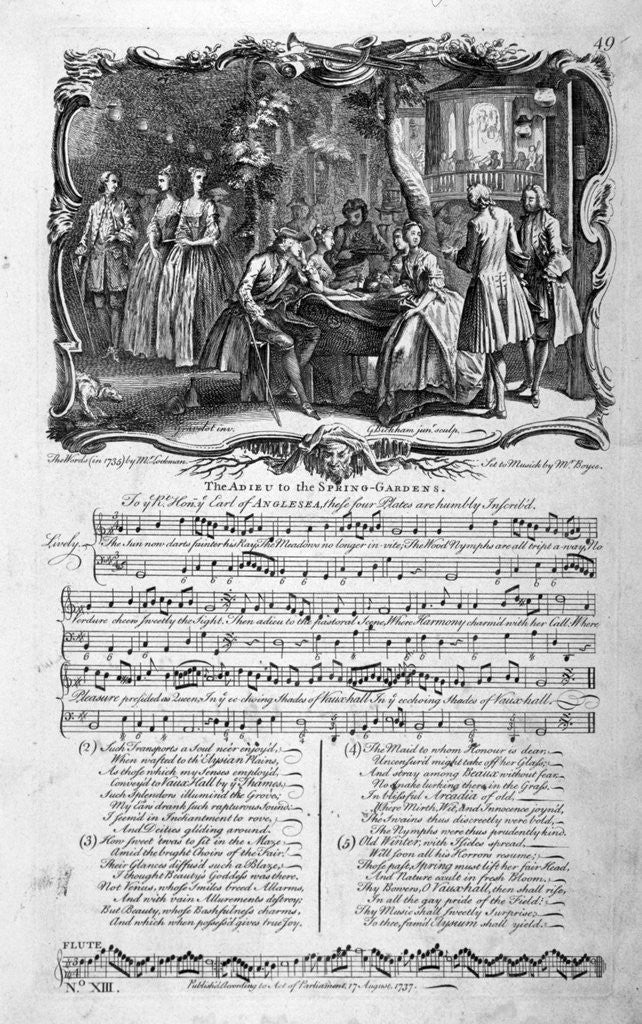 49
Gravelot inv.
G.Bickham jun.r sculp.
The Words (in 1735) by Mr. Lockman.
Set to Musick by Mr. Boyce.
The ADIEU to the SPRING-GARDENS.
To ye Rt. Hon.ye Earl of ANGLESEA, these four Plates are humbly Inscrib'd.
Lively.
The Sun now darts fainter his Ray, The Meadows no longer in-vite, The Wood Nymphs are all tript a-way, No
Verdure cheers sweetly the Sight. Then adieu to the pastoral Scene, Where Harmony charm'd with her Call: Where
Pleasure presided as Queen, In ye ecchoing Shades of Vauxhall In ye ecchoing Shades of Vauxhall.
(2) Such Transports a Soul neer enjoy'd,
When wafted to th' Elysian Plains,
As those which my Senses employ'd,
Convey'd to Vaux Hall by ye Thames;
Such Splendors illumin'd the Grove,
My Ears drank such rapturous Sound,
I seem'd in Inchantment to rove,
And Deities gliding around.
(3) How sweet twas to sit in the Maze
Amid the bright Choirs of the Fair;
Their Glances diffus'd such a Blaze,
I thought Beauty's Goddess was there.
Not Venus, whose Smiles breed Allarms,
And with vain Allurements destroy;
But Beauty, whose Bashfulness charms,
And which when possess'd gives true Joy.
(4) The Maid to whom Honour is dear
Uncensur'd might take off her Glass;
And stray among Beaux without fear
No Snake lurking there in the Grass.
In blissful Arcadia of old,
Where Mirth, Wit, and Innocence joyn'd,
The Swains thus discreetly were bold,
The Nymphs were thus prudently kind.
(5) Old Winter, with Isicles spread,
Will soon all his Horrors resume;
Those past, Spring must lift her fair Head,
And Nature exult in fresh Bloom.
Thy Bowers, O Vauxhall, then shall rise,
In all the gay pride of the Field:
Thy Music shall sweetly Surprise;
To thee, fam'd Elysium shall yield.
FLUTE
No. XIII.
Publish'd According to Act of Parliament, 17 August, 1737.